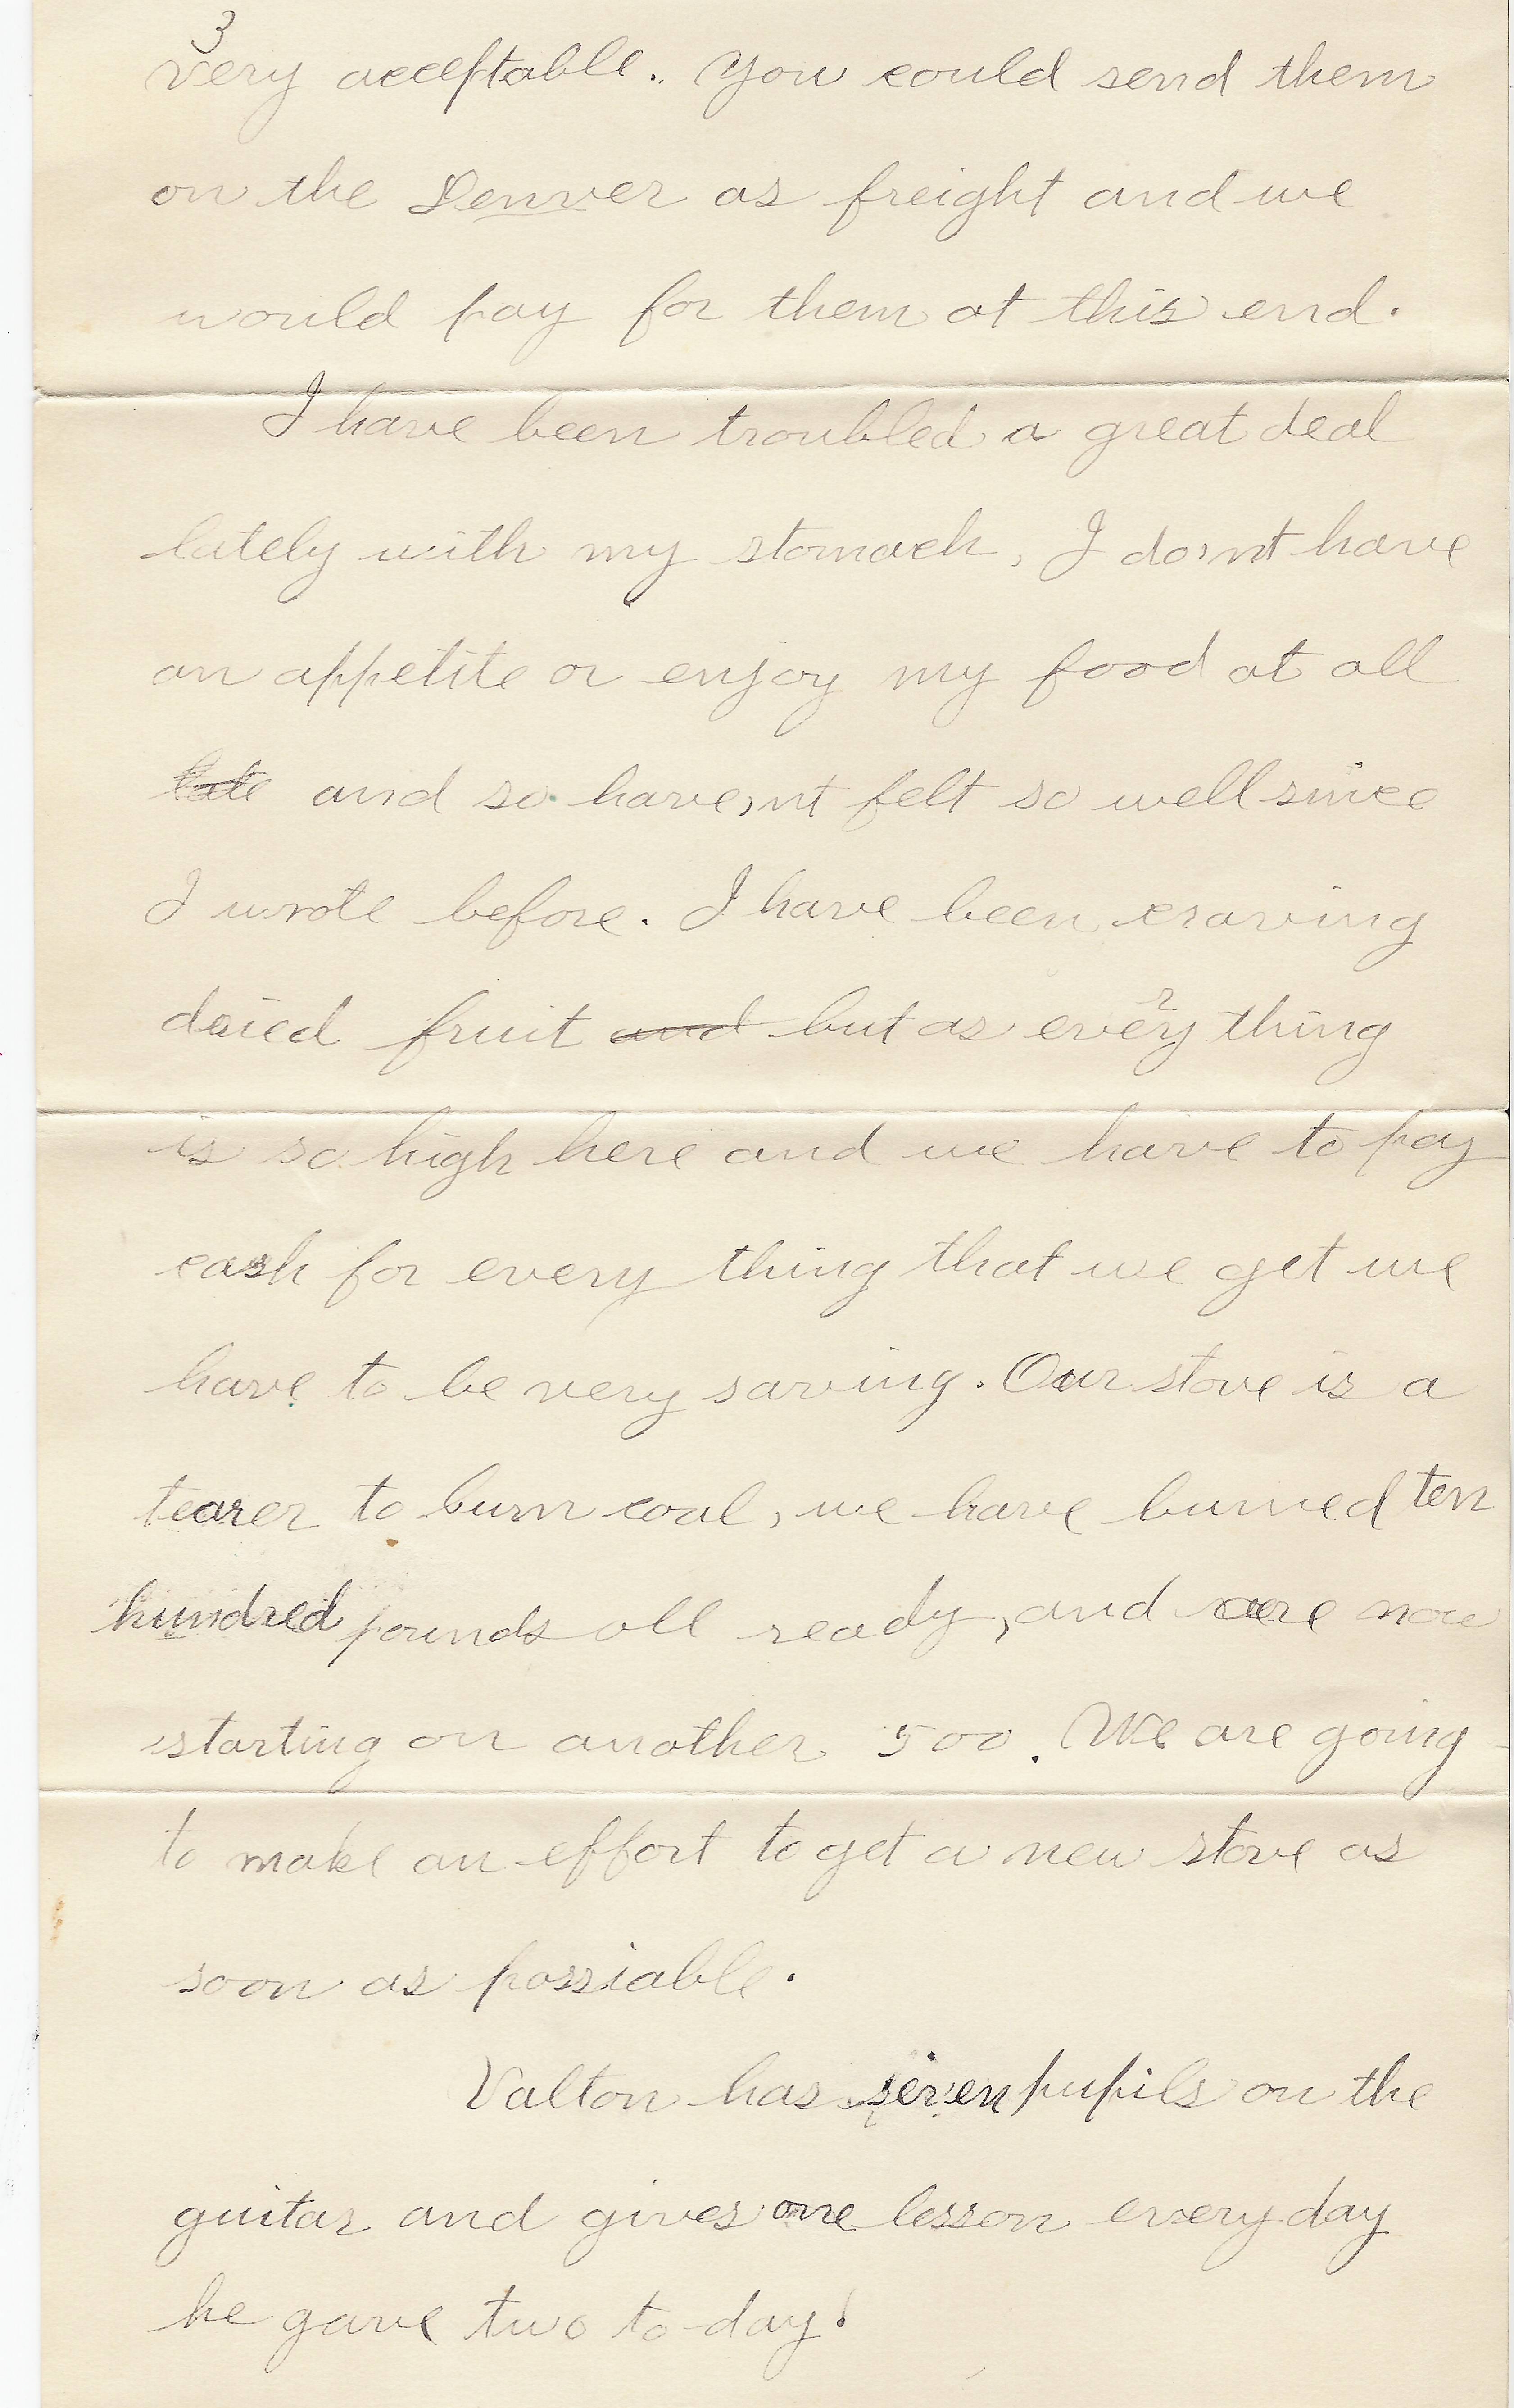 3
very acceptable. You could send them
on the Denver as freight and we
would pay for them at this end.
I have been troubled a great deal
lately with my stomach, I do,nt have
an appetite or enjoy my food at all
late and so have,nt felt so well since
I wrote before. I have been craving
dried fruit and but as every thing
is so high here and we have to pay
cash for every thing that we get we
have to be very saving. Our stove is a
tearer to burn coal, we have burned ten
hundred pounds all ready, and are now
starting on another 500. We are going
to make an effort to get a new stove as
soon as possiable.
Valton has seven pupils on the
guitar and gives one lesson every day
he gave two to-day!